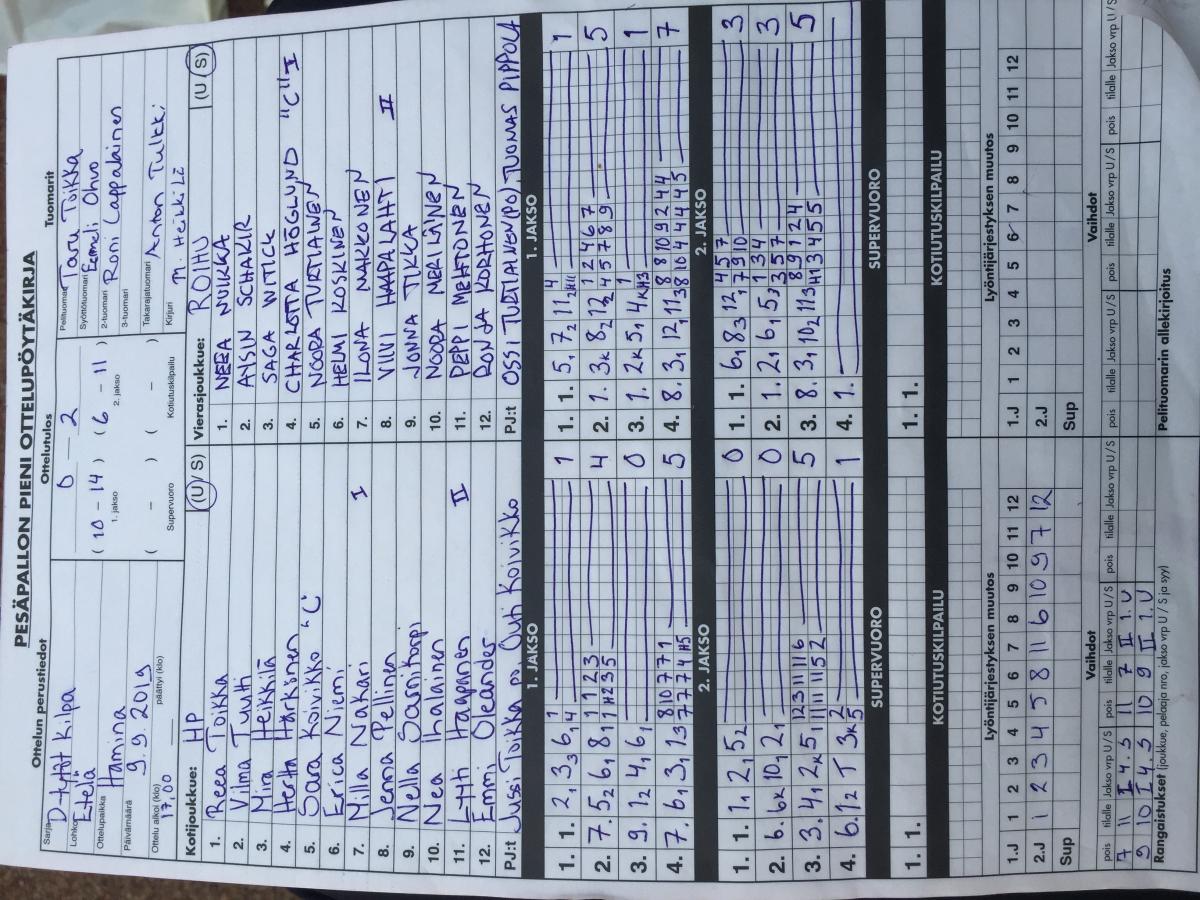 PESÄPALLON PIENI OTTELUPÖYTÄKIRJA
Ottelun perustiedot
Sarja
D-tytöt Kilpa
Lohko
Etelä
Ottelupaikka
Hamina
Päivämäärä
9.9.2019
Ottelu alkoi (klo)
17,00
päättyi (klo)
Ottelutulos
0 – 2
( 10 – 14 ) ( 6 – 11 )
1. jakso 2. jakso
( – ) ( – )
Supervuoro Kotiutuskilpailu
Tuomarit
Pelituomari Taru Toikka
Syöttötuomari Eemeli Ohvo
2-tuomari Roni Lappalainen
3-tuomari
Takarajatuomari Anton Tulkki
Kirjuri M. Heikkilä
Kotijoukkue: HP (U / S)
1. Reea Toikka
2. Vilma Tuuhti
3. Mira Heikkilä
4. Hertta Härkönen
5. Sara Koivikko "C"
6. Erica Niemi
7. Milla Nakari I
8. Jenna Pellinen
9. Nella Saanikopi
10. Nea Ihalainen
11. Etti Haapanen II
12. Emmi Oleander
PJ:t Jussi Toikka po Outi Koivikko
Vierasjoukkue: ROIHU (U / S)
1. NEEA NUIKKA
2. AYSIN SCHAKIR
3. SAGA WITICK
4. CHARLOTTA HÖGLUND "C" I
5. NOORA TURTIAINEN
6. HELMI KOSKINEN
7. ILONA NAKKONEN
8. VIIVI HAAPALAHTI II
9. JONNA TIKKA
10. NOORA MERILÄINEN
11. PEPPI MEHTONEN
12. RONJA KORHONEN
PJ:t OSSI TURTIAINEN(PO), TUOMAS PIPPOLA
1. JAKSO
1. 1. 2, 3₃ 6, 1 4 1
2. 7. 5₂ 6, 8, 1 1 1 2 3 1 H2 3 5 4
3. 9. 1₂ 4, 6, 0
4. 7. 6, 3, 1₃ 8 10 7 7 1 7 7 7 4 H5 5
1. JAKSO
1. 1. 5, 7₂ 11₂ 4 1
2. 1. 3K 8₂ 12₁ 1 2 4 6 7 4 5 7 8 9 5
3. 1. 2K 5, 4K 1 H3 1
4. 8. 3, 12, 11₃ 8 8 10 9 2 4 4 8 10 4 4 4 4 5 7
2. JAKSO
1. 1. 1, 2, 5₂ 0
2. 6. 6K 10, 2, 0
3. 3. 4, 2K 5, 12 3 11 11 6 11 11 1 5 2 5
4. 6. 1₂ T 3K 2 5 1
2. JAKSO
1. 1. 6, 8₃ 12, 4 5 7 7 9 10 3
2. 1. 2, 6, 5, 1 3 4 3 5 7 3
3. 8. 3, 10₂ 11₃ 8 9 1 2 4 H1 3 4 5 5 5
4. 1. 1
SUPERVUORO
1. 1.
SUPERVUORO
1. 1.
KOTIUTUSKILPAILU
KOTIUTUSKILPAILU
Lyöntijärjestyksen muutos
1.J 1 2 3 4 5 6 7 8 9 10 11 12
2.J 1 2 3 4 5 8 11 6 10 9 7 12
Sup
Lyöntijärjestyksen muutos
1.J 1 2 3 4 5 6 7 8 9 10 11 12
2.J
Sup
Vaihdot
pois tilalle Jakso vrp U / S pois tilalle Jakso vrp U / S pois tilalle Jakso vrp U / S
7 11 I 4.S 11 7 II 1.U
9 10 I 4.S 10 9 II 1.U
Vaihdot
pois tilalle Jakso vrp U / S pois tilalle Jakso vrp U / S pois tilalle Jakso vrp U / S
Rangaistukset (joukkue, pelaaja nro, jakso vrp U / S ja syy)
Pelituomarin allekirjoitus